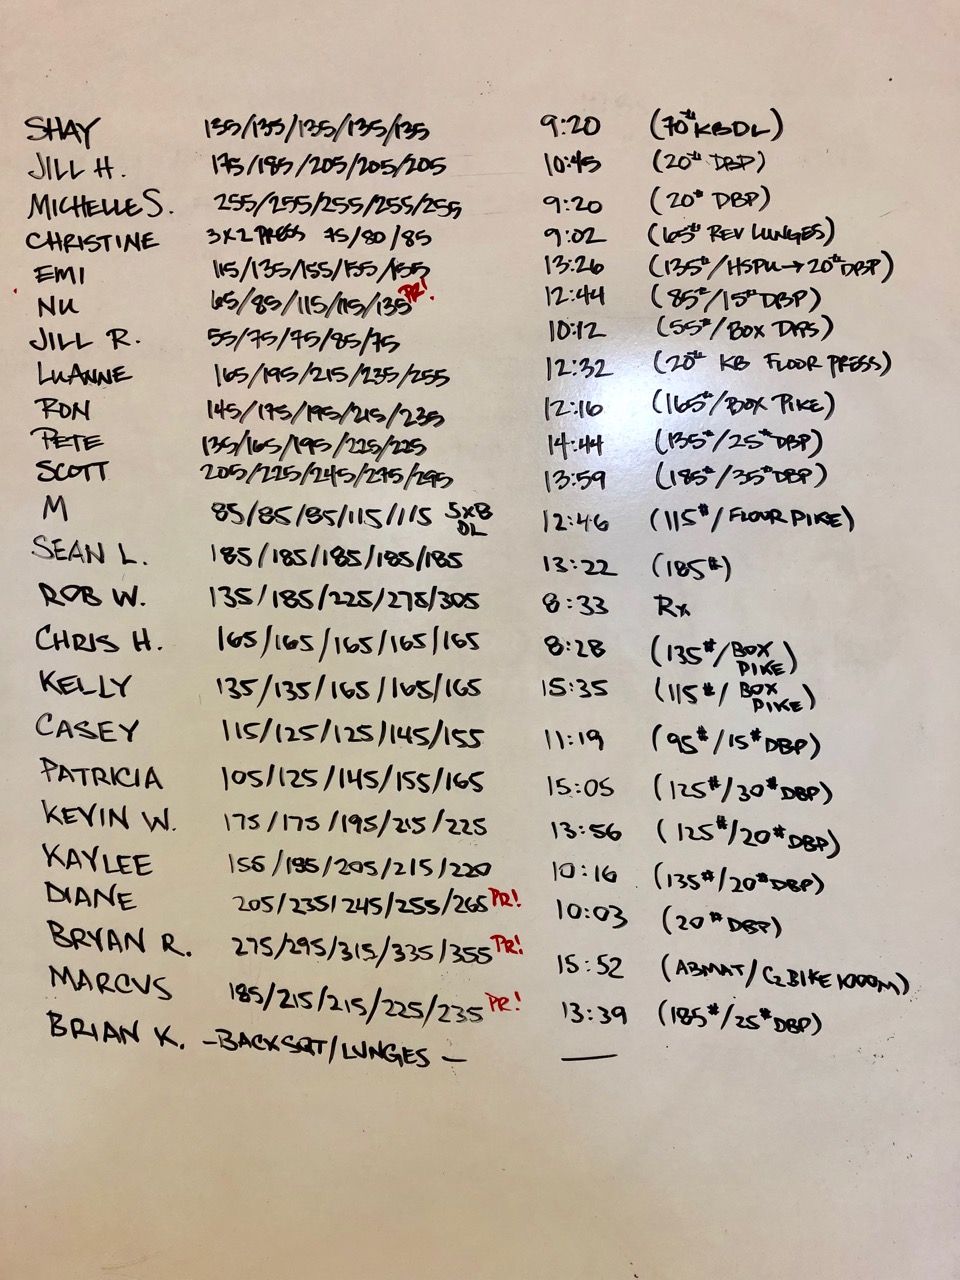 SHAY 135/135/135/135/135 9:20 (70# KBDL)
JILL H. 175/185/205/205/205 10:45 (20# DBP)
MICHELLE S. 255/255/255/255/255 9:20 (20# DBP)
CHRISTINE 3X2 PRESS 75/80/85 9:02 (65# REV LUNGES)
EMI 115/135/155/155/155 13:26 (135#/HSPU→20# DBP)
NU 65/85/115/115/135 PR! 12:44 (85#/15# DBP)
JILL R. 55/75/75/85/75 10:12 (55#/BOX DIPS)
LUANNE 165/195/215/235/255 12:32 (20# KB FLOOR PRESS)
RON 145/175/195/215/235 12:16 (165#/BOX PIKE)
PETE 135/165/195/225/225 14:44 (135#/25# DBP)
SCOTT 205/225/245/275/295 13:59 (185#/35# DBP)
M 85/85/85/115/115 5X8 DL 12:46 (115#/FLOOR PIKE)
SEAN L. 185/185/185/185/185 13:22 (185#)
ROB W. 135/185/225/275/305 8:33 Rx
CHRIS H. 165/165/165/165/165 8:28 (135#/BOX PIKE)
KELLY 135/135/165/165/165 15:35 (115#/BOX PIKE)
CASEY 115/125/125/145/155 11:19 (95#/15# DBP)
PATRICIA 105/125/145/155/165 15:05 (125#/30# DBP)
KEVIN W. 175/175/195/215/225 13:56 (125#/20# DBP)
KAYLEE 155/195/205/215/220 10:16 (135#/20# DBP)
DIANE 205/235/245/255/265 PR! 10:03 (20# DBP)
BRYAN R. 275/295/315/335/355 PR! 15:52 (ABMAT/C2 BIKE 1000M)
MARCUS 185/215/215/225/235 PR! 13:39 (185#/25# DBP)
BRIAN K. -BACK SQT/LUNGES- —